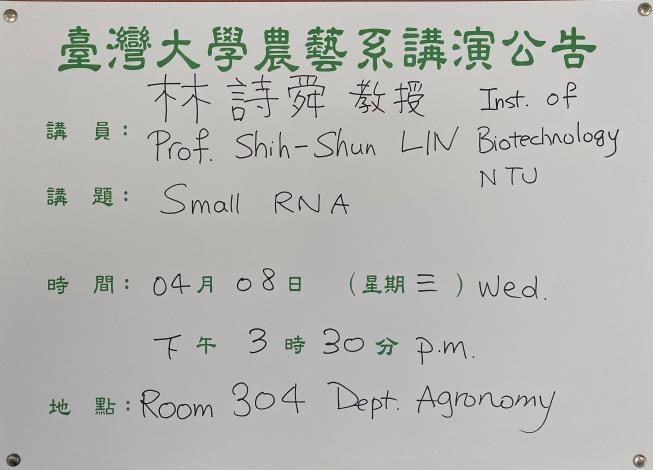 臺灣大學農藝系講演公告
林詩舜 教授 Inst. of
講員: Prof. Shih-Shun LIN Biotechnology
NTU
講題: Small RNA
時間: 04月 08日 (星期三) Wed.
下午 3時 30分 p.m.
地點: Room 304 Dept. Agronomy